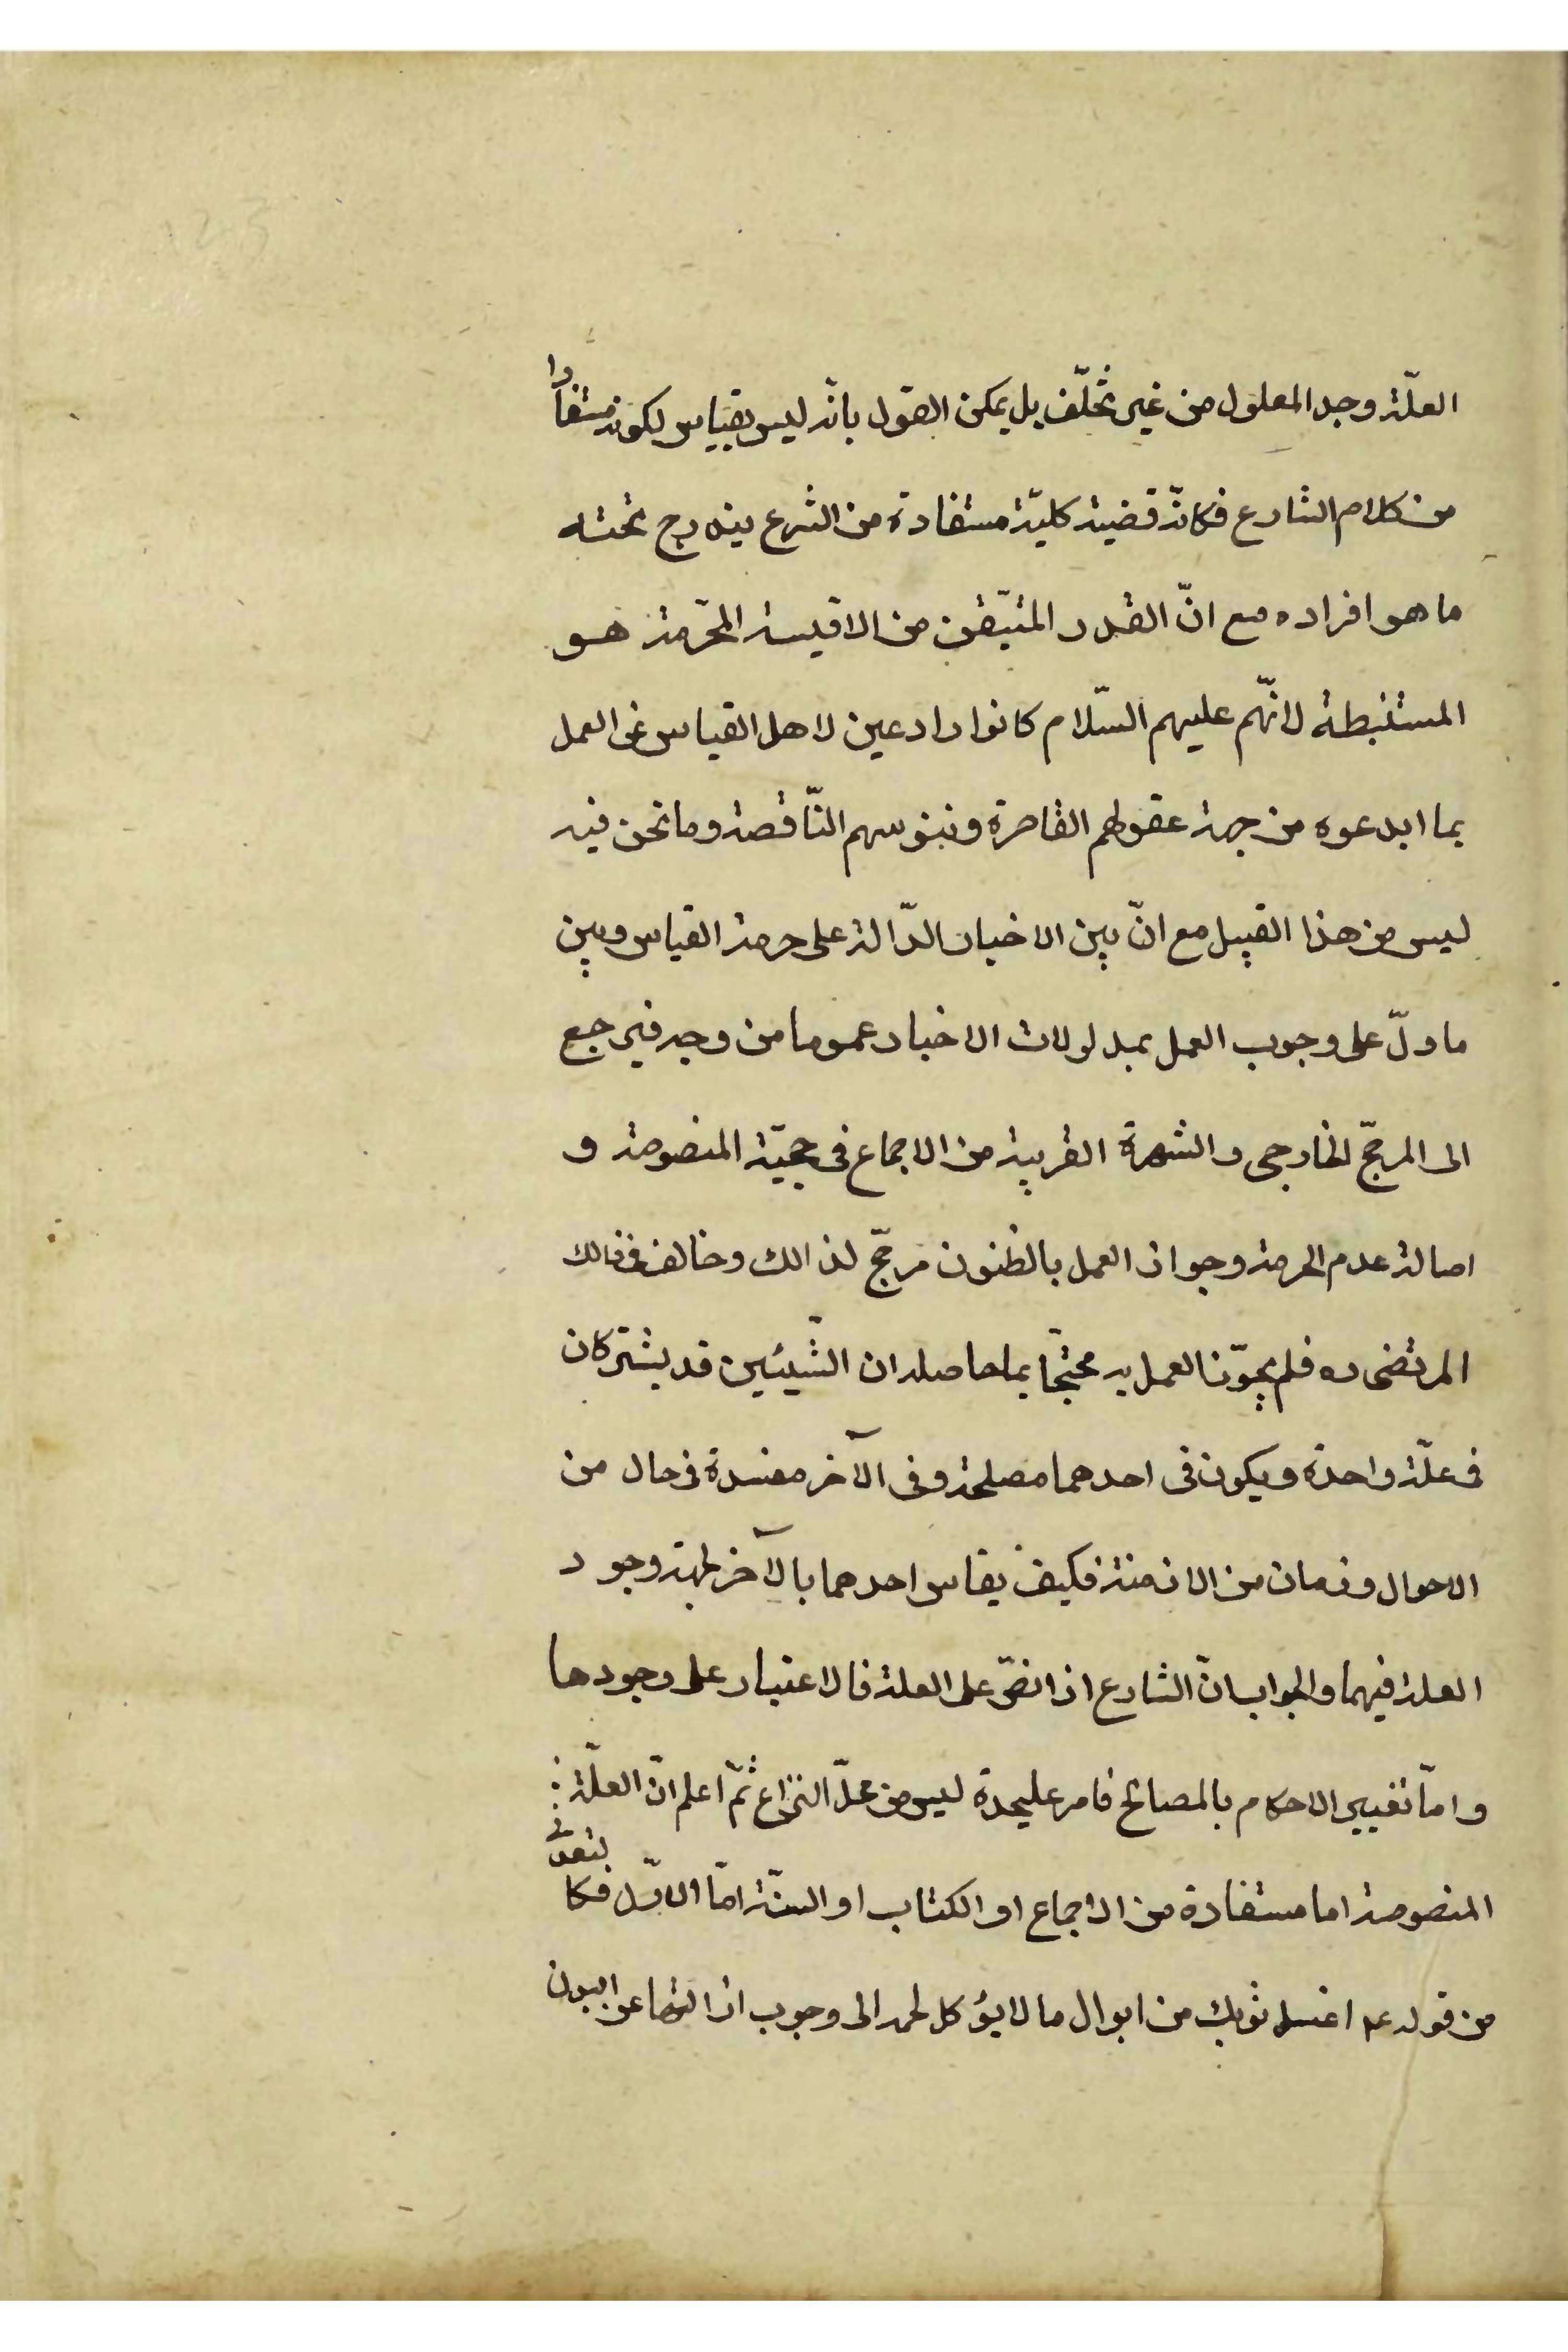 العلّة وجد المعلول من غير تخلّف بل يمكن القول بانّه ليس بقياس لكونه مستفادا
من كلام الشارع فكانّه قضية كليّة مستفادة من الشرع يندرج تحته
ما هو افراده مع انّ القدر المتيّقن من الاقيسة المحّرمة هو
المستنبطة لانّهم عليهم السّلام كانوا رادعين لاهل القياس عن العمل
بما ابدعوه من جهة عقولهم القاصرة ونفوسهم النّاقصة وما نحن فيه
ليس من هذا القبيل مع انّ بين الاخبار الدّالة على حرمة القياس وبين
ما دلّ على وجوب العمل بمدلولات الاخبار عموما من وجه فيرجع
الى المرجّح الخارجى والشهرة القريبة من الاجماع فى حجيّة المنصوصة و
اصالة عدم الحرمة وجواز العمل بالظنون مرجّح لذالك وخالف فى ذالك
المرتضى ره فلم يجوّز العمل به محتجّا بما حاصله ان الشّيئين قد يشتركان
فى علّة واحدة ويكون فى احدهما مصلحة وفى الآخر مفسدة فى حال من
الاحوال وزمان من الازمنة فكيف يقاس احدهما بالآخر لجهة وجود
العلة فيهما والجواب انّ الشارع اذا نصّ على العلة فالاعتبار على وجودها
وامّا تغيير الاحكام بالمصالح فامر عليحدة ليس من محلّ النزاع ثمّ اعلم انّ العلّة
المنصوصة اما مستفادة من الاجماع او الكتاب او السنّة امّا الاوّل فكا لتعدّى
من قوله عم اغسل ثوبك من ابوال ما لا يؤكل لحمه الى وجوب ازالتها عن البدن